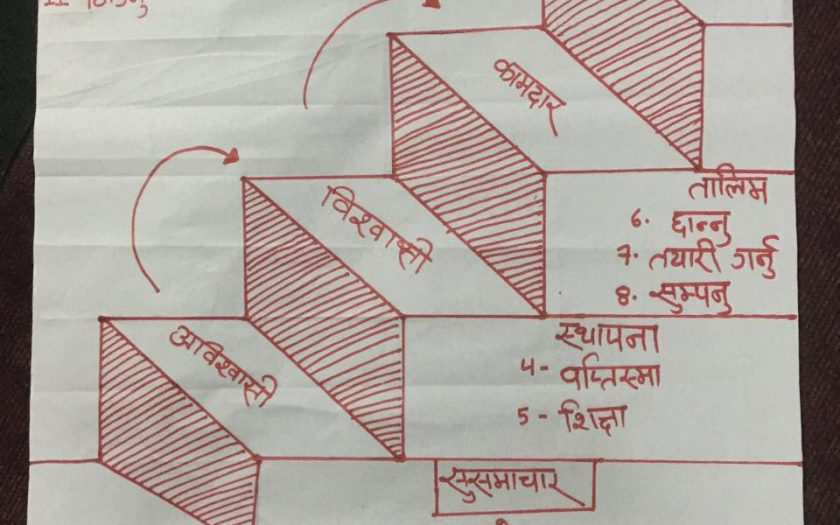 कामदार
तालिम
6. छान्नु
7. तयारी गर्नु
8. सुम्पनु
विश्वासी
स्थापना
4- वप्तिस्मा
5- शिक्षा
अविश्वासी
सुसमाचार